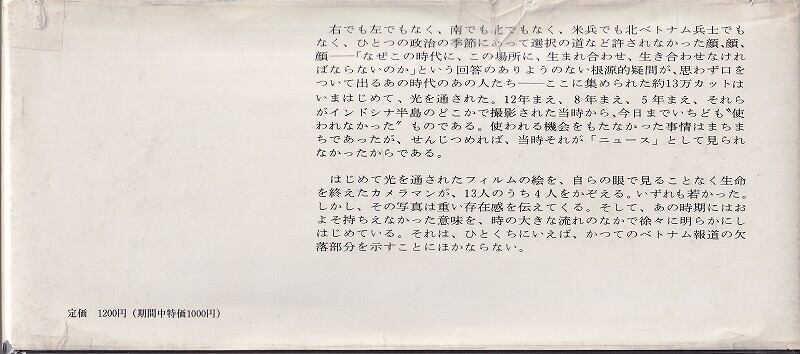 右でも左でもなく、南でも北でもなく、米兵でも北ベトナム兵士でも
なく、ひとつの政治の季節にあって選択の道など許されなかった顔、顔、
顔――「なぜこの時代に、この場所に、生まれ合わせ、生き合わせなけれ
ばならないのか」という回答のありようのない根源的疑問が、思わず口を
ついて出るあの時代のあの人たち――ここに集められた約13万カットは
いまはじめて、光を通された。12年まえ、8年まえ、5年まえ、それら
がインドシナ半島のどこかで撮影された当時から、今日までいちども〝使
われなかった〟ものである。使われる機会をもたなかった事情はまちま
ちであったが、せんじつめれば、当時それが「ニュース」として見られ
なかったからである。
はじめて光を通されたフィルムの絵を、自らの眼で見ることなく生命
を終えたカメラマンが、13人のうち4人をかぞえる。いずれも若かった。
しかし、その写真は重い存在感を伝えてくる。そして、あの時期にはお
よそ持ちえなかった意味を、時の大きな流れのなかで徐々に明らかにし
はじめている。それは、ひとくちにいえば、かつてのベトナム報道の欠
落部分を示すことにほかならない。
定価 1200円(期間中特価1000円)